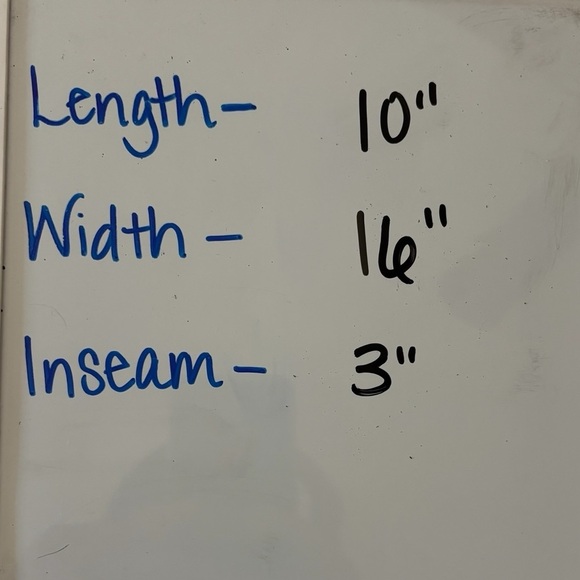 Length- 10"
Width - 16"
Inseam - 3"